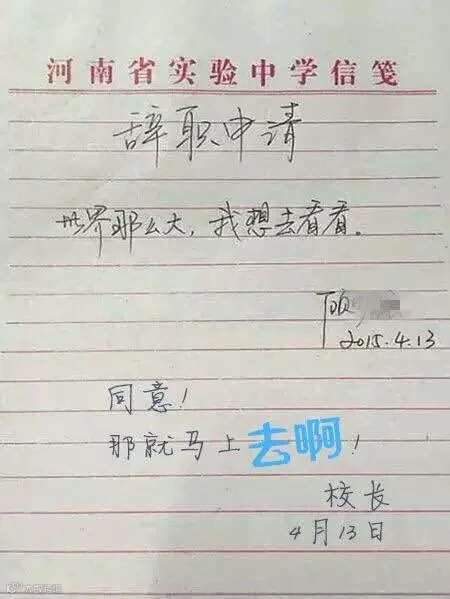 河南省实验中学信笺
辞职申请
世界那么大，我想去看看。
顾
2015.4.13
同意！
那就马上去啊！
校长
4月13日